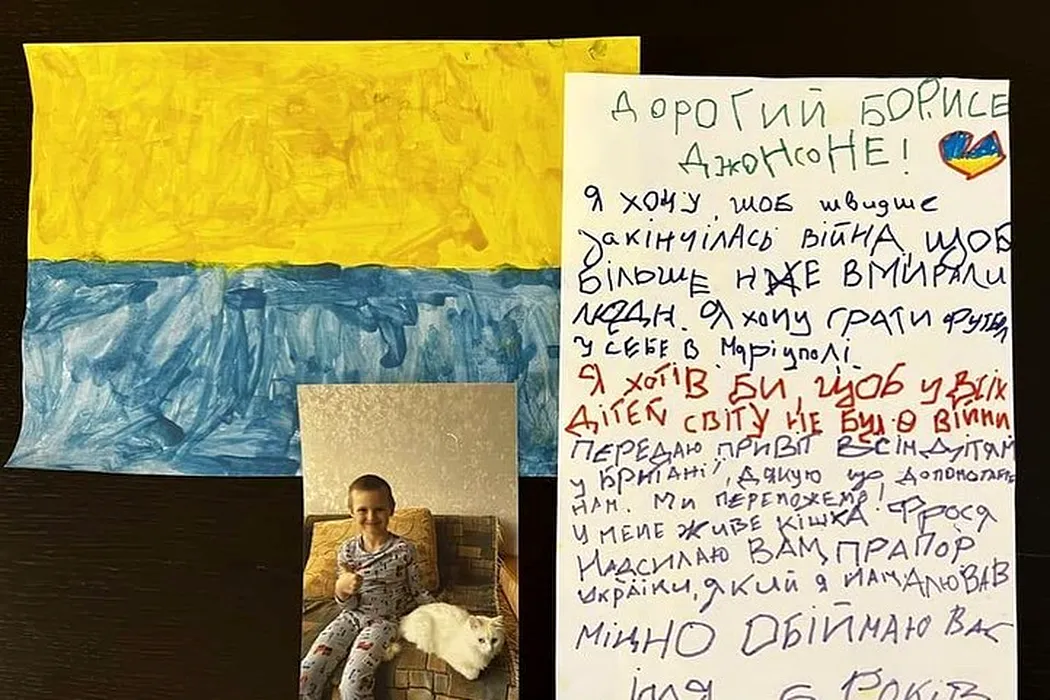 ДОРОГИЙ БОРИСЕ
ДЖОНСОНЕ!
Я ХОЧУ, ЩОБ ШВИДШЕ
ЗАКІНЧІЛАСЬ ВІЙНА, ЩОБ
БІЛЬШЕ НЕ ВМИРАЛИ
ЛЮДИ. Я ХОЧУ ГРАТИ ФУТБОЛ
У СЕБЕ В Маріуполі.
Я ХОТІВ БИ, ЩОБ У ВСІХ
ДІТЕЙ СВІТУ НЕ БУЛО ВІЙНИ
ПЕРЕДАЮ ПРИВІТ ВСІМ ДІТЯМ
У БРИТАНІЇ, ДЯКУЮ ЩО ДОПОМОГАЄТЕ
НАМ. МИ ПЕРЕМОЖЕМО!
У МЕНЕ ЖИВЕ КІШКА ФРОСЯ
НАДСИЛАЮ ВАМ ПРАПОР
УКРАЇНИ, ЯКИЙ Я НАМАЛЮВАВ
МІЦНО ОБІЙМАЮ ВАС
ІЛЛЯ 6 РОКІВ